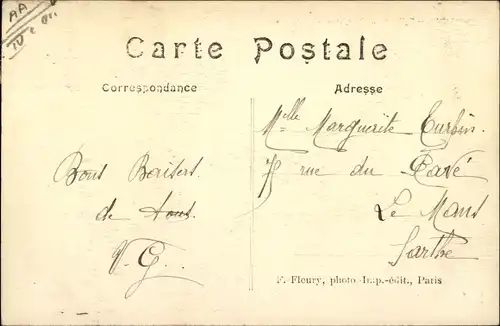 AA
Carte Postale
Correspondance
Adresse
Bons Baisers
de tous.
V. G.
Melle Marguerite
rue du Pavé
Le Mans
Sarthe
F. Fleury, photo-Imp.-édit., Paris